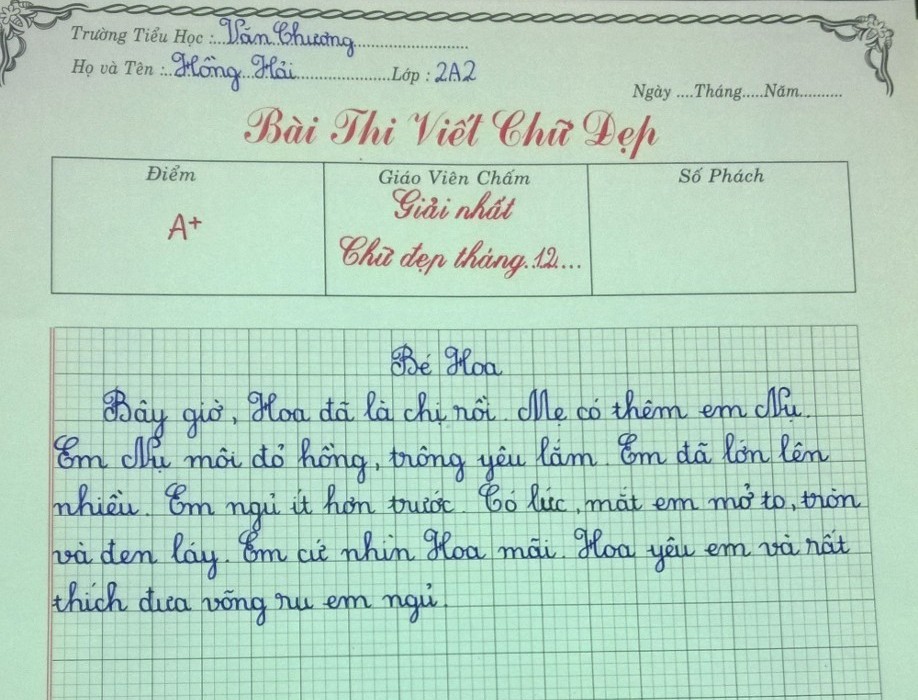 Trường Tiểu Học :..Văn Chương........................
Họ và Tên :..Hồng Hải....................Lớp : 2A2
Ngày ....Tháng.....Năm..........
Bài Thi Viết Chữ Đẹp
Điểm Giáo Viên Chấm Số Phách
A+ Giải nhất
Chữ đẹp tháng.12....
Bé Hoa
Bây giờ, Hoa đã là chị rồi. Mẹ có thêm em Nụ.
Em Nụ môi đỏ hồng, trông yêu lắm. Em đã lớn lên
nhiều. Em ngủ ít hơn trước. Có lúc, mắt em mở to, tròn
và đen láy. Em cứ nhìn Hoa mãi. Hoa yêu em và rất
thích đưa võng ru em ngủ.